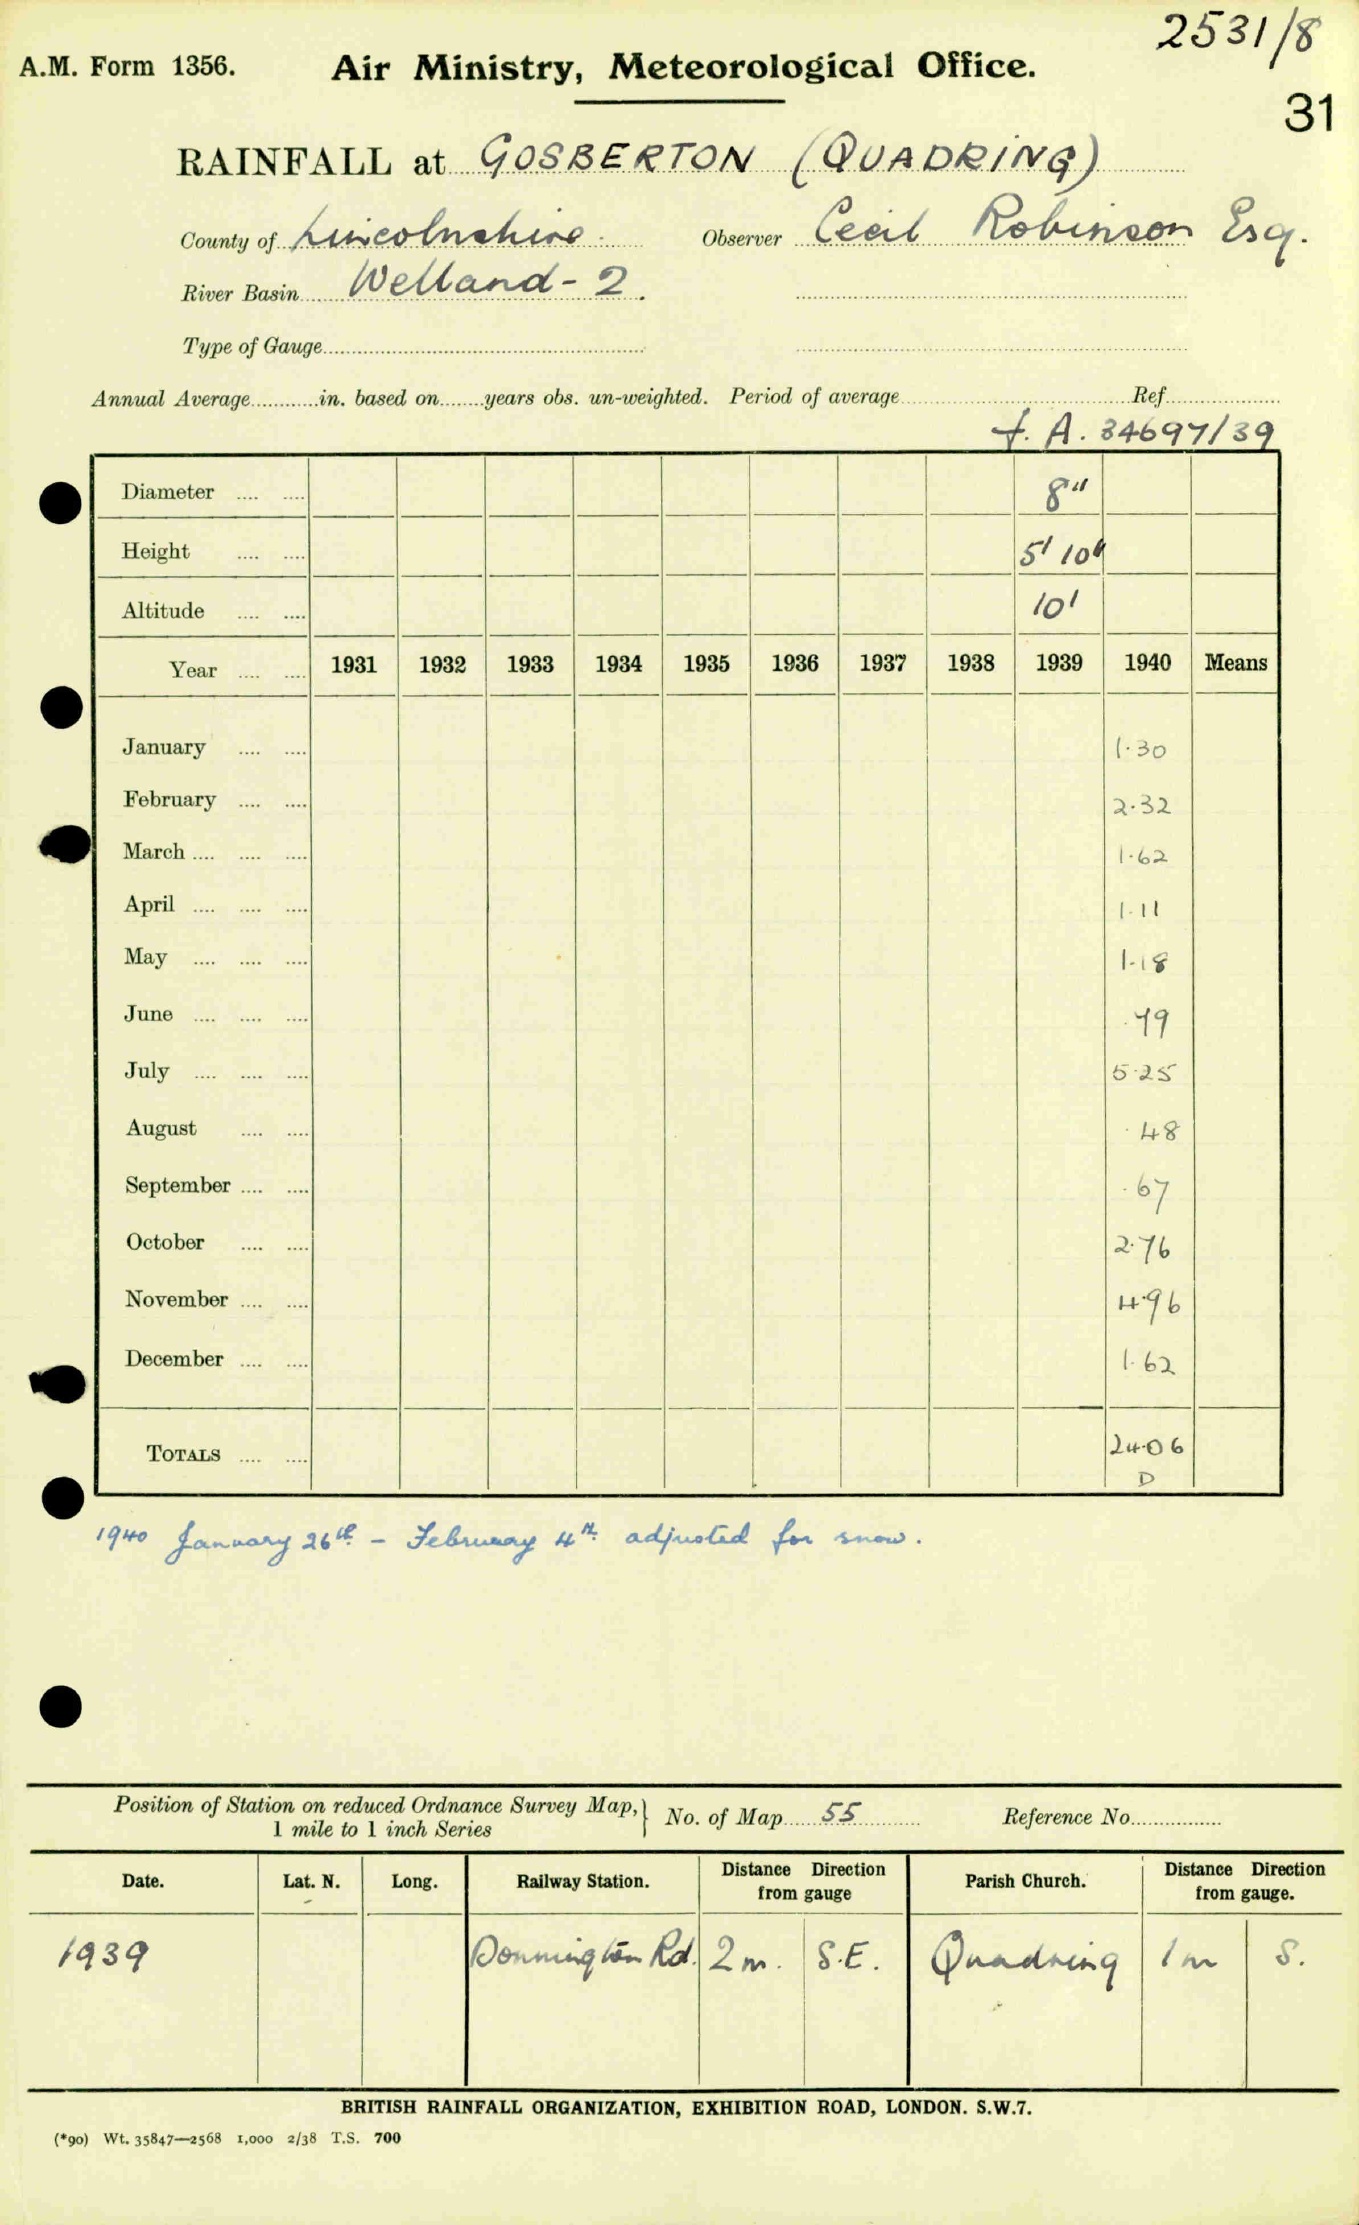 2531/8
A.M. Form 1356. Air Ministry, Meteorological Office.
31
RAINFALL at GOSBERTON (QUADRING)
County of Lincolnshire. Observer Cecil Robinson Esq.
River Basin Welland - 2.
Type of Gauge
Annual Average in. based on years obs. un-weighted. Period of average Ref.
f. A. 34697/39
Diameter .... .... 8"
Height .... .... 5' 10"
Altitude .... .... 10'
Year .... .... 1931 1932 1933 1934 1935 1936 1937 1938 1939 1940 Means
January .... .... 1.30
February .... .... 2.32
March .... .... .... 1.62
April .... .... .... 1.11
May .... .... .... 1.18
June .... .... .... .79
July .... .... .... 5.25
August .... .... .48
September .... .... .67
October .... .... 2.76
November .... .... 4.96
December .... .... 1.62
TOTALS .... .... 24.06
D
1940 January 26th - February 4th adjusted for snow.
Position of Station on reduced Ordnance Survey Map, } No. of Map 55 Reference No.
1 mile to 1 inch Series
Date. Lat. N. Long. Railway Station. Distance Direction from gauge Parish Church. Distance Direction from gauge.
1939 Donnington Rd. 2 m. S.E. Quadring 1 m S.
BRITISH RAINFALL ORGANIZATION, EXHIBITION ROAD, LONDON. S.W.7.
(*90) Wt. 35847—2568 1,000 2/38 T.S. 700